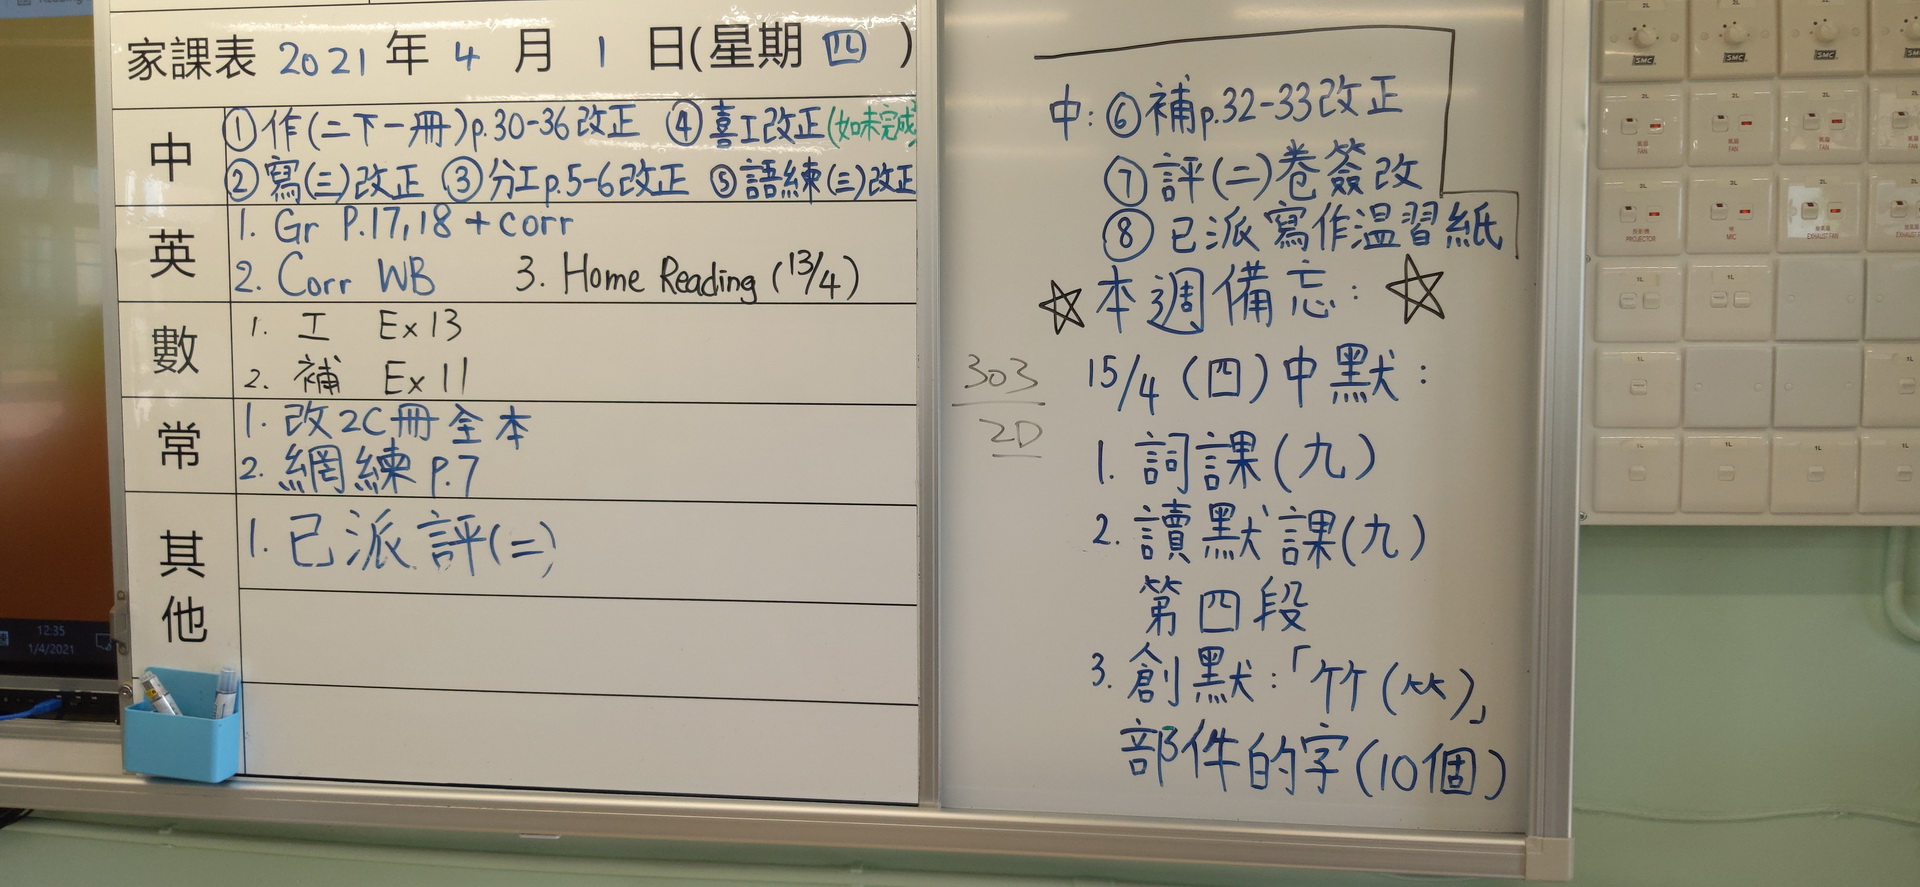 家課表 2021 年 4 月 1 日(星期 四 )
中
①作(二下一冊)p.30-36改正 ④喜工改正(如未完成
②寫(三)改正 ③分工p.5-6改正 ⑤語練(三)改正
英
1. Gr P.17,18 + corr
2. Corr WB 3. Home Reading (13/4)
數
1. 工 Ex 13
2. 補 Ex 11
常
1. 改2C冊全本
2. 網練 p.7
其他
1. 已派評(二)
12:35
1/4/2021
中: ⑥補p.32-33改正
⑦評(二)卷簽改
⑧已派寫作溫習紙
☆本週備忘: ☆
303
2D
15/4 (四) 中默:
1. 詞課(九)
2. 讀默課(九)
第四段
3. 創默:「竹(⺮)」
部件的字(10個)
2L
2L
2L
2L
SMC
SMC
SMC
SMC
2L
2L
2L
FAN
FAN
FAN
3L
2L
2L
PROJECTOR
MIC
EXHAUST FAN
1L
1L
1L
1L
1L
1L
1L
1L